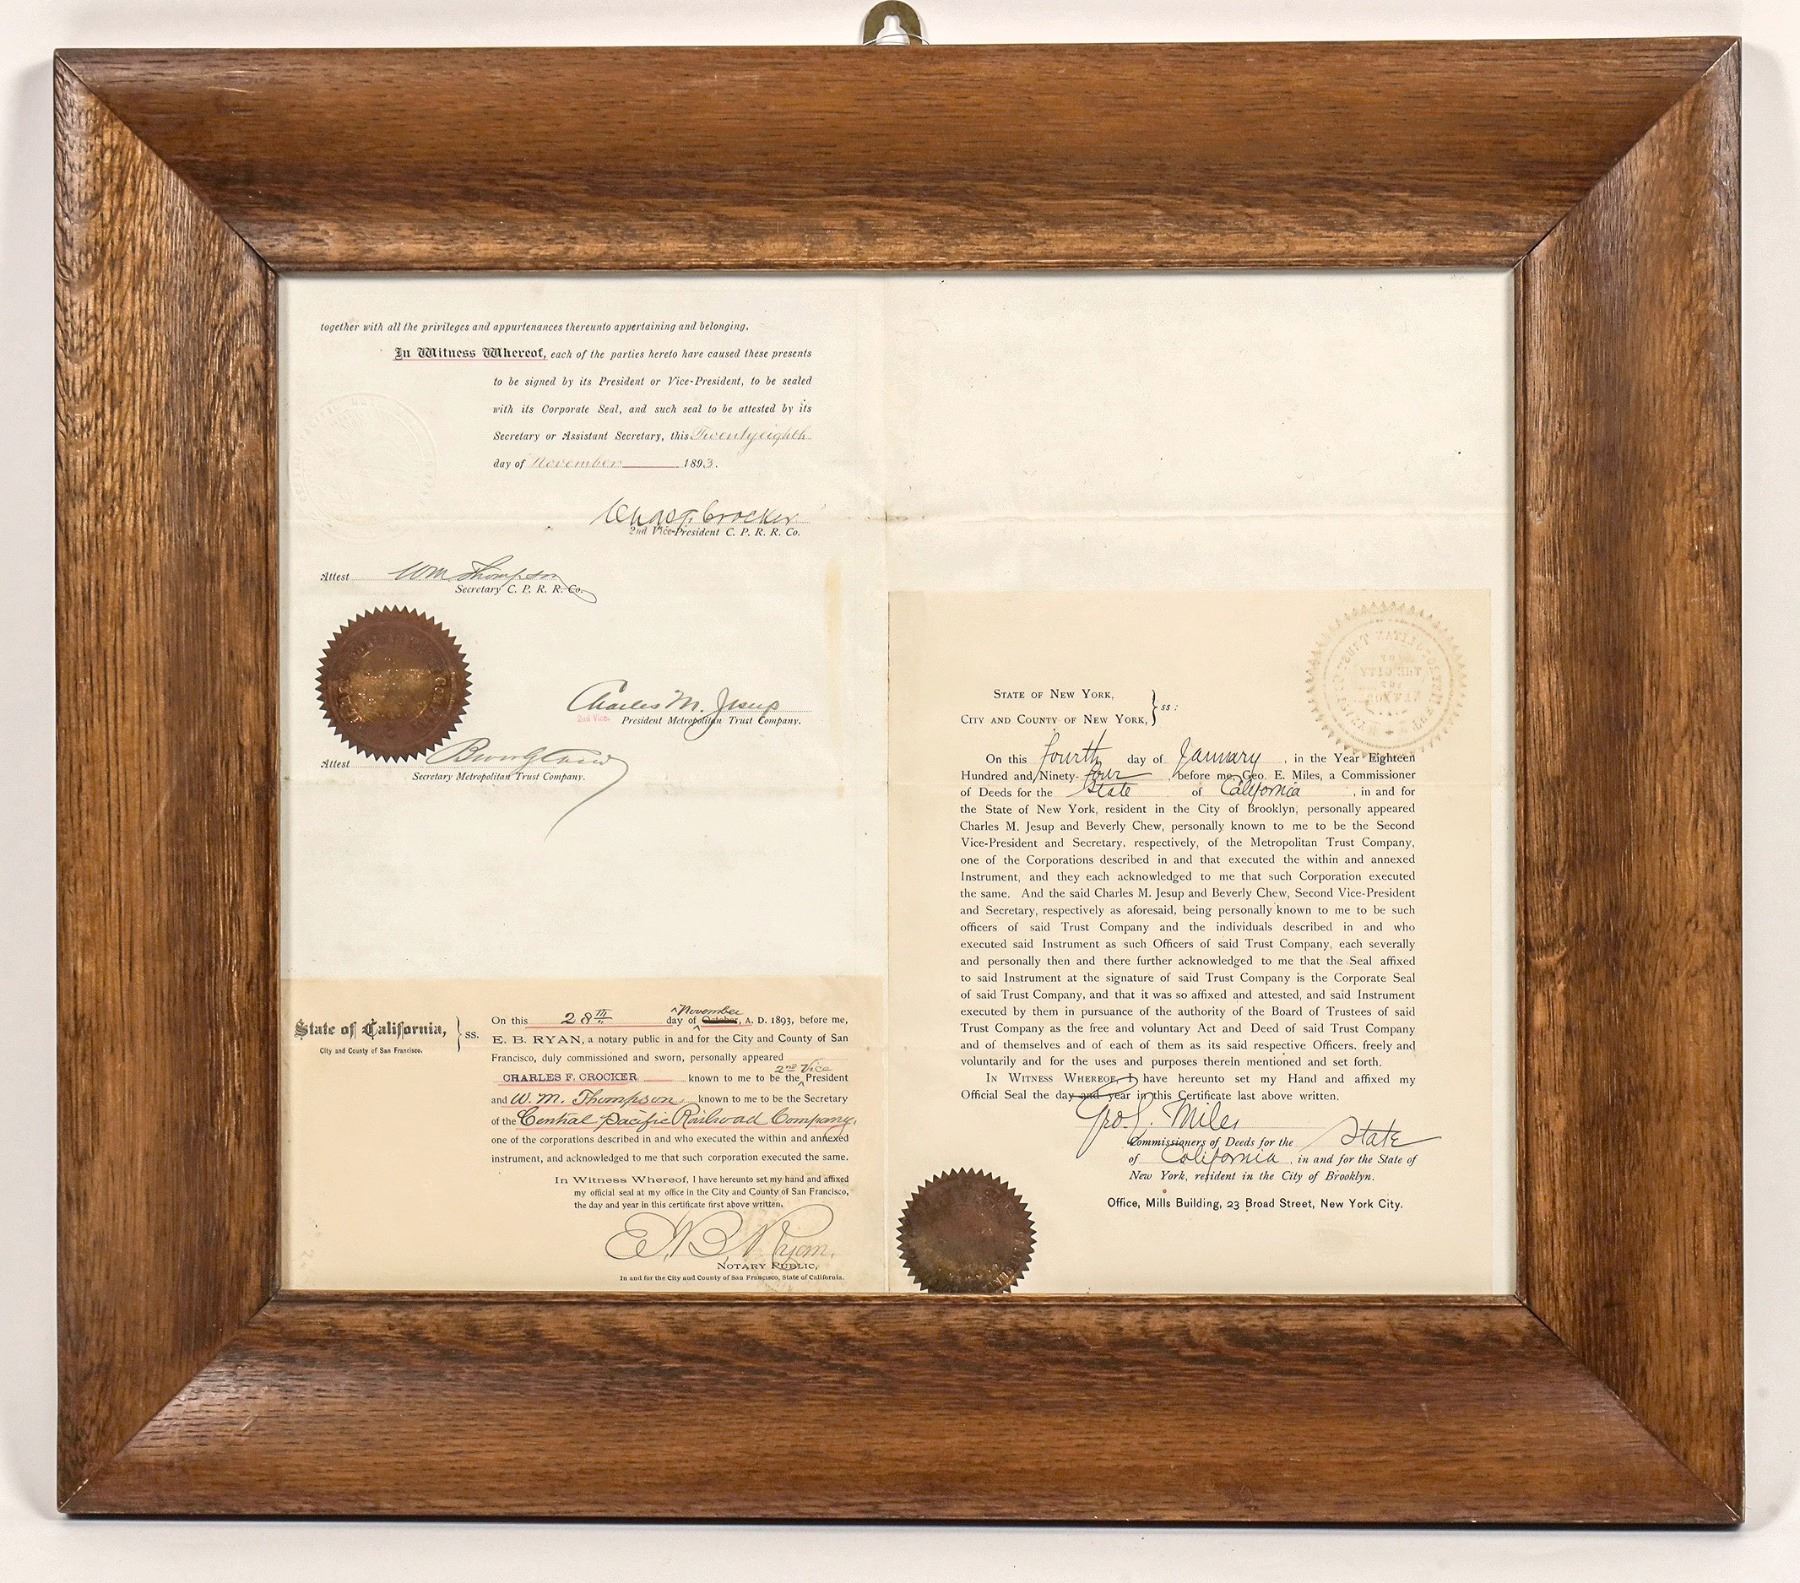 together with all the privileges and appurtenances thereunto appertaining and belonging.
In Witness Whereof, each of the parties hereto have caused these presents
to be signed by its President or Vice-President, to be sealed
with its Corporate Seal, and such seal to be attested by its
Secretary or Assistant Secretary, this Twentyeighth
day of November 1893.
Chas F. Crocker
2nd Vice-President C. P. R. R. Co.
Attest Wm Thompson
Secretary C. P. R. R. Co.
Charles M. Jesup
2nd Vice. President Metropolitan Trust Company.
Attest
Secretary Metropolitan Trust Company.
State of California,
City and County of San Francisco.
ss.
On this 28th day of October, ^November A. D. 1893, before me,
E. B. RYAN, a notary public in and for the City and County of San
Francisco, duly commissioned and sworn, personally appeared
CHARLES F. CROCKER known to me to be the ^2nd Vice President
and W. M. Thompson known to me to be the Secretary
of the Central Pacific Railroad Company,
one of the corporations described in and who executed the within and annexed
instrument, and acknowledged to me that such corporation executed the same.
In Witness Whereof, I have hereunto set my hand and affixed
my official seal at my office in the City and County of San Francisco,
the day and year in this certificate first above written.
E. B. Ryan.
NOTARY PUBLIC,
In and for the City and County of San Francisco, State of California.
STATE OF NEW YORK,
CITY AND COUNTY OF NEW YORK,
ss:
On this fourth day of January, in the Year Eighteen
Hundred and Ninety-four, before me, Geo. E. Miles, a Commissioner
of Deeds for the State of California, in and for
the State of New York, resident in the City of Brooklyn, personally appeared
Charles M. Jesup and Beverly Chew, personally known to me to be the Second
Vice-President and Secretary, respectively, of the Metropolitan Trust Company,
one of the Corporations described in and that executed the within and annexed
Instrument, and they each acknowledged to me that such Corporation executed
the same. And the said Charles M. Jesup and Beverly Chew, Second Vice-President
and Secretary, respectively as aforesaid, being personally known to me to be such
officers of said Trust Company and the individuals described in and who
executed said Instrument as such Officers of said Trust Company, each severally
and personally then and there further acknowledged to me that the Seal affixed
to said Instrument at the signature of said Trust Company is the Corporate Seal
of said Trust Company, and that it was so affixed and attested, and said Instrument
executed by them in pursuance of the authority of the Board of Trustees of said
Trust Company as the free and voluntary Act and Deed of said Trust Company
and of themselves and of each of them as its said respective Officers, freely and
voluntarily and for the uses and purposes therein mentioned and set forth.
IN WITNESS WHEREOF, I have hereunto set my Hand and affixed my
Official Seal the day and year in this Certificate last above written.
Geo. E. Miles
Commissioners of Deeds for the State
of California, in and for the State of
New York, resident in the City of Brooklyn.
Office, Mills Building, 23 Broad Street, New York City.